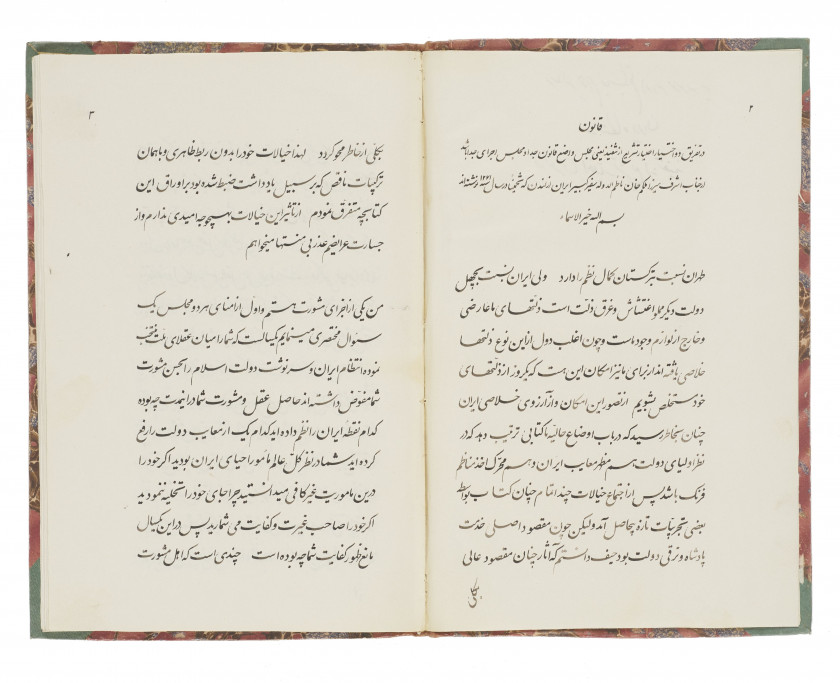 ۲
قانون
در تفریق دو اختیار اختیار تشریع از تنفیذ یعنی مجلس واضع قانون جدا و مجلس اجرای جدا باشد
از جناب اشرف میرزا ملکم خان ناظم الدوله سفیر کبیر ایران از لندن که شخصا در سال نوشته‌اند
بسم الله خیر الاسماء
طهران نسبت بترکستان کمال نظم را دارد ولی ایران نسبت بچهل
دولت دیگر مملو اغتشاش و غرق ذلت است ذلتهای ما عارضی
و خارج از لوازم وجود ماست و چون اغلب دول از این نوع ذلتها
خلاصی یافته‌اند از برای ما نیز امکان این هست که یکروز از ذلتهای
خود مستخلص بشویم از تصور این امکان و از آرزوی خلاصی ایران
چنان بخاطر رسید که در باب اوضاع حالیه ما کتابی ترتیب دهد که در
نظر اولیای دولت هم مظهر معایب ایران و هم محرک اخذ مناظم
فرنک باشد پس از اجتماع خیالات چند اتمام چنان کتاب بواسطه
بعضی تجربیات تازه بیحاصل آمد ولیکن چون مقصود اصلی خدمت
پادشاه و ترقی دولت بود حیف دانستم که آثار چنان مقصود عالی
بکلی
۳
بکلی از خاطر محو کردد لهذا خیالات خود را بدون ربط ظاهری و با همان
ترکیبات ناقص که بر سبیل یادداشت ضبط شده بود بر اوراق این
کتابچه متفرق نمودم از تأثیر این خیالات بهیچوجه امیدی ندارم و از
جسارت عرایضم عذر بی منتها میخواهم
من یکی از اجزای مشورت هستم و اول از امنای هر دو مجلس یک
سئوال مختصری مینمایم یکسالست که شما را میان عقلای ملت منتخب
نموده انتظام ایران و سرنوشت دولت اسلام را بحسن مشورت
شما مفوض داشته‌اند حاصل عقل و مشورت شما در اینمدت چه بوده
کدام نقطه ایران را نظم داده‌اید کدام یک از معایب دولت را رفع
کرده‌اید شما در نظر کل عالم مأمور احیای ایران بودید اکر خود را
درین مأموریت غیر کافی میدانستید چرا جای خود را تخلیه ننمودید
اکر خود را صاحب غیرت و کفایت می شمارید پس در این یکسال
مانع ظهور کفایت شما چه بوده است چندی است که اهل مشورت